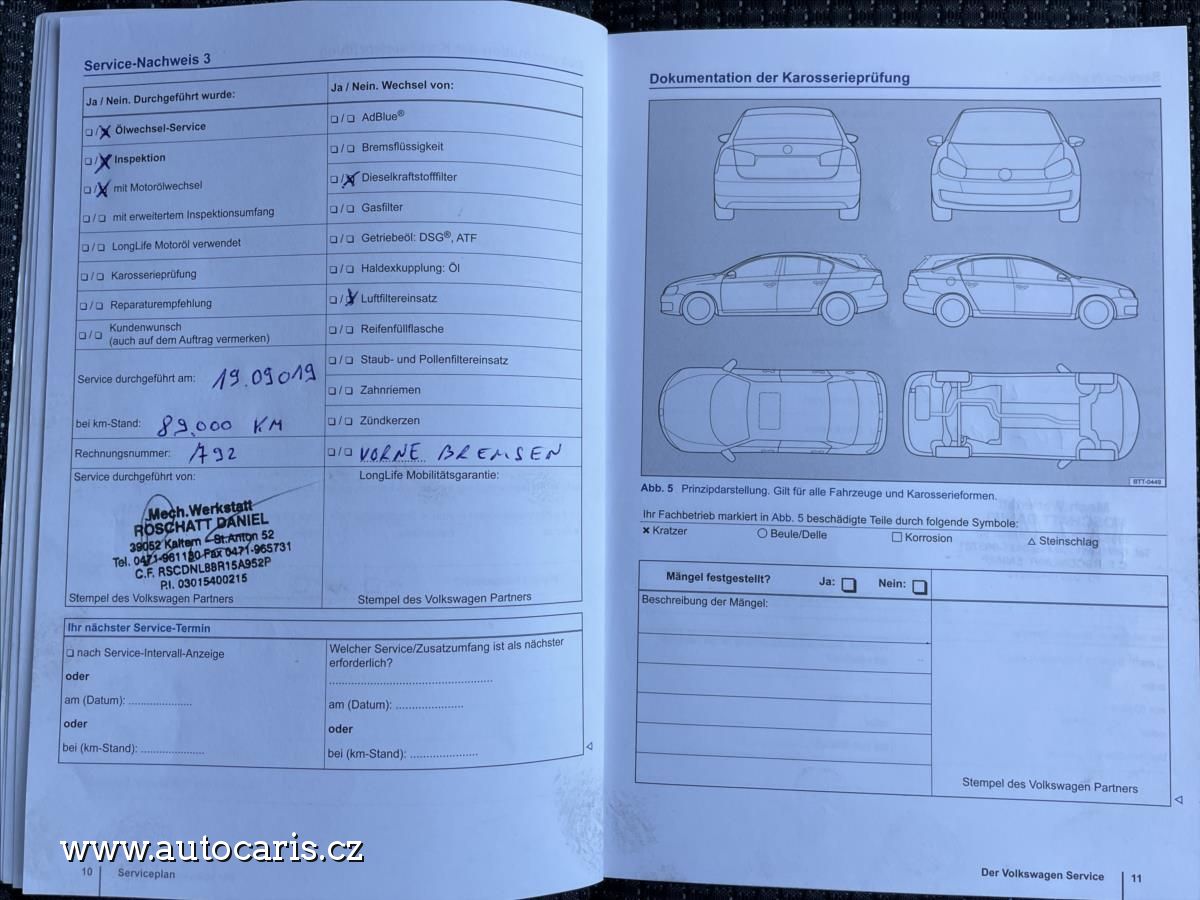 Service-Nachweis 3
Ja / Nein. Durchgeführt wurde:
❏ / ❏ Ölwechsel-Service
❏ / ❏ Inspektion
❏ / ❏ mit Motorölwechsel
❏ / ❏ mit erweitertem Inspektionsumfang
❏ / ❏ LongLife Motoröl verwendet
❏ / ❏ Karosserieprüfung
❏ / ❏ Reparaturempfehlung
❏ / ❏ Kundenwunsch
(auch auf dem Auftrag vermerken)
Service durchgeführt am: 19.09019
bei km-Stand: 89.000 KM
Rechnungsnummer: 792
Service durchgeführt von:
Mech.Werkstatt
RÖSCHATT DANIEL
39052 Kaltern - St.Anton 52
Tel. 0471-961180 Fax 0471-965731
C.F. RSCDNL88R15A952P
P.I. 03015400215
Stempel des Volkswagen Partners
Ja / Nein. Wechsel von:
❏ / ❏ AdBlue®
❏ / ❏ Bremsflüssigkeit
❏ / ❏ Dieselkraftstofffilter
❏ / ❏ Gasfilter
❏ / ❏ Getriebeöl: DSG®, ATF
❏ / ❏ Haldexkupplung: Öl
❏ / ❏ Luftfiltereinsatz
❏ / ❏ Reifenfüllflasche
❏ / ❏ Staub- und Pollenfiltereinsatz
❏ / ❏ Zahnriemen
❏ / ❏ Zündkerzen
❏ / ❏ VORNE BREMSEN
LongLife Mobilitätsgarantie:
Stempel des Volkswagen Partners
Ihr nächster Service-Termin
❏ nach Service-Intervall-Anzeige
oder
am (Datum): ....................
oder
bei (km-Stand): ....................
Welcher Service/Zusatzumfang ist als nächster
erforderlich?
....................................................
am (Datum): .....................
oder
bei (km-Stand): .....................
10 Serviceplan
Dokumentation der Karosserieprüfung
BTT-0449
Abb. 5 Prinzipdarstellung. Gilt für alle Fahrzeuge und Karosserieformen.
Ihr Fachbetrieb markiert in Abb. 5 beschädigte Teile durch folgende Symbole:
× Kratzer ○ Beule/Delle □ Korrosion △ Steinschlag
Mängel festgestellt? Ja: ❏ Nein: ❏
Beschreibung der Mängel:
Stempel des Volkswagen Partners
Der Volkswagen Service 11
www.autocaris.cz